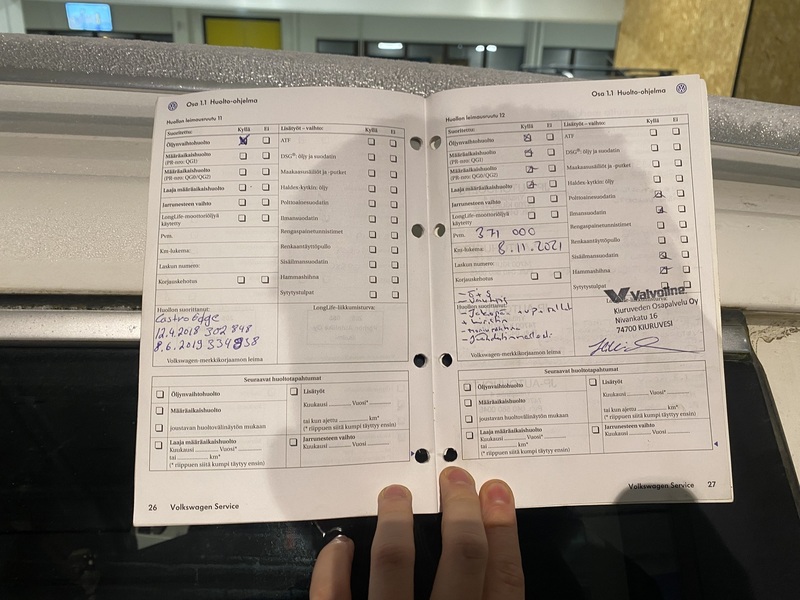 Osa 1.1 Huolto-ohjelma
Huollon leimausruutu 11
Suoritettu: Kyllä Ei
Öljynvaihtohuolto
Määräaikaishuolto
(PR-nro: QG1)
Määräaikaishuolto
(PR-nro: QG0/QG2)
Laaja määräaikaishuolto
Jarrunesteen vaihto
LongLife-moottoriöljyä
käytetty
Pvm.
Km-lukema:
Laskun numero:
Korjauskehotus
Lisätyöt – vaihto: Kyllä Ei
ATF
DSG®: öljy ja suodatin
Maakaasusäiliöt ja -putket
Haldex-kytkin: öljy
Polttoainesuodatin
Ilmansuodatin
Rengaspainetunnistimet
Renkaantäyttöpullo
Sisäilmansuodatin
Hammashihna
Sytytystulpat
Huollon suorittanut:
Castrol Edge
12.4.2018 302 848
8.6.2019 334838
Volkswagen-merkkikorjaamon leima
LongLife-liikkumisturva:
Seuraavat huoltotapahtumat
Öljynvaihtohuolto
Määräaikaishuolto
joustavan huoltovälinäytön mukaan
Laaja määräaikaishuolto
Kuukausi Vuosi*
tai km*
(* riippuen siitä kumpi täytyy ensin)
Lisätyöt
Kuukausi Vuosi*
tai kun ajettu km*
(* riippuen siitä kumpi täytyy ensin)
Jarrunesteen vaihto
Kuukausi Vuosi
26 Volkswagen Service
Osa 1.1 Huolto-ohjelma
Huollon leimausruutu 12
Suoritettu: Kyllä Ei
Öljynvaihtohuolto
Määräaikaishuolto
(PR-nro: QG1)
Määräaikaishuolto
(PR-nro: QG0/QG2)
Laaja määräaikaishuolto
Jarrunesteen vaihto
LongLife-moottoriöljyä
käytetty
Pvm. 371 000
Km-lukema: 8.11.2021
Laskun numero:
Korjauskehotus
Lisätyöt – vaihto: Kyllä Ei
ATF
DSG®: öljy ja suodatin
Maakaasusäiliöt ja -putket
Haldex-kytkin: öljy
Polttoainesuodatin
Ilmansuodatin
Rengaspainetunnistimet
Renkaantäyttöpullo
Sisäilmansuodatin
Hammashihna
Sytytystulpat
Huollon suorittanut:
Volkswagen-merkkikorjaamon leima
Valvoline
Kiuruveden Osapalvelu Oy
Nivankatu 16
74700 KIURUVESI
Seuraavat huoltotapahtumat
Öljynvaihtohuolto
Määräaikaishuolto
joustavan huoltovälinäytön mukaan
Laaja määräaikaishuolto
Kuukausi Vuosi*
tai km*
(* riippuen siitä kumpi täytyy ensin)
Lisätyöt
Kuukausi Vuosi*
tai kun ajettu km*
(* riippuen siitä kumpi täytyy ensin)
Jarrunesteen vaihto
Kuukausi Vuosi
Volkswagen Service 27